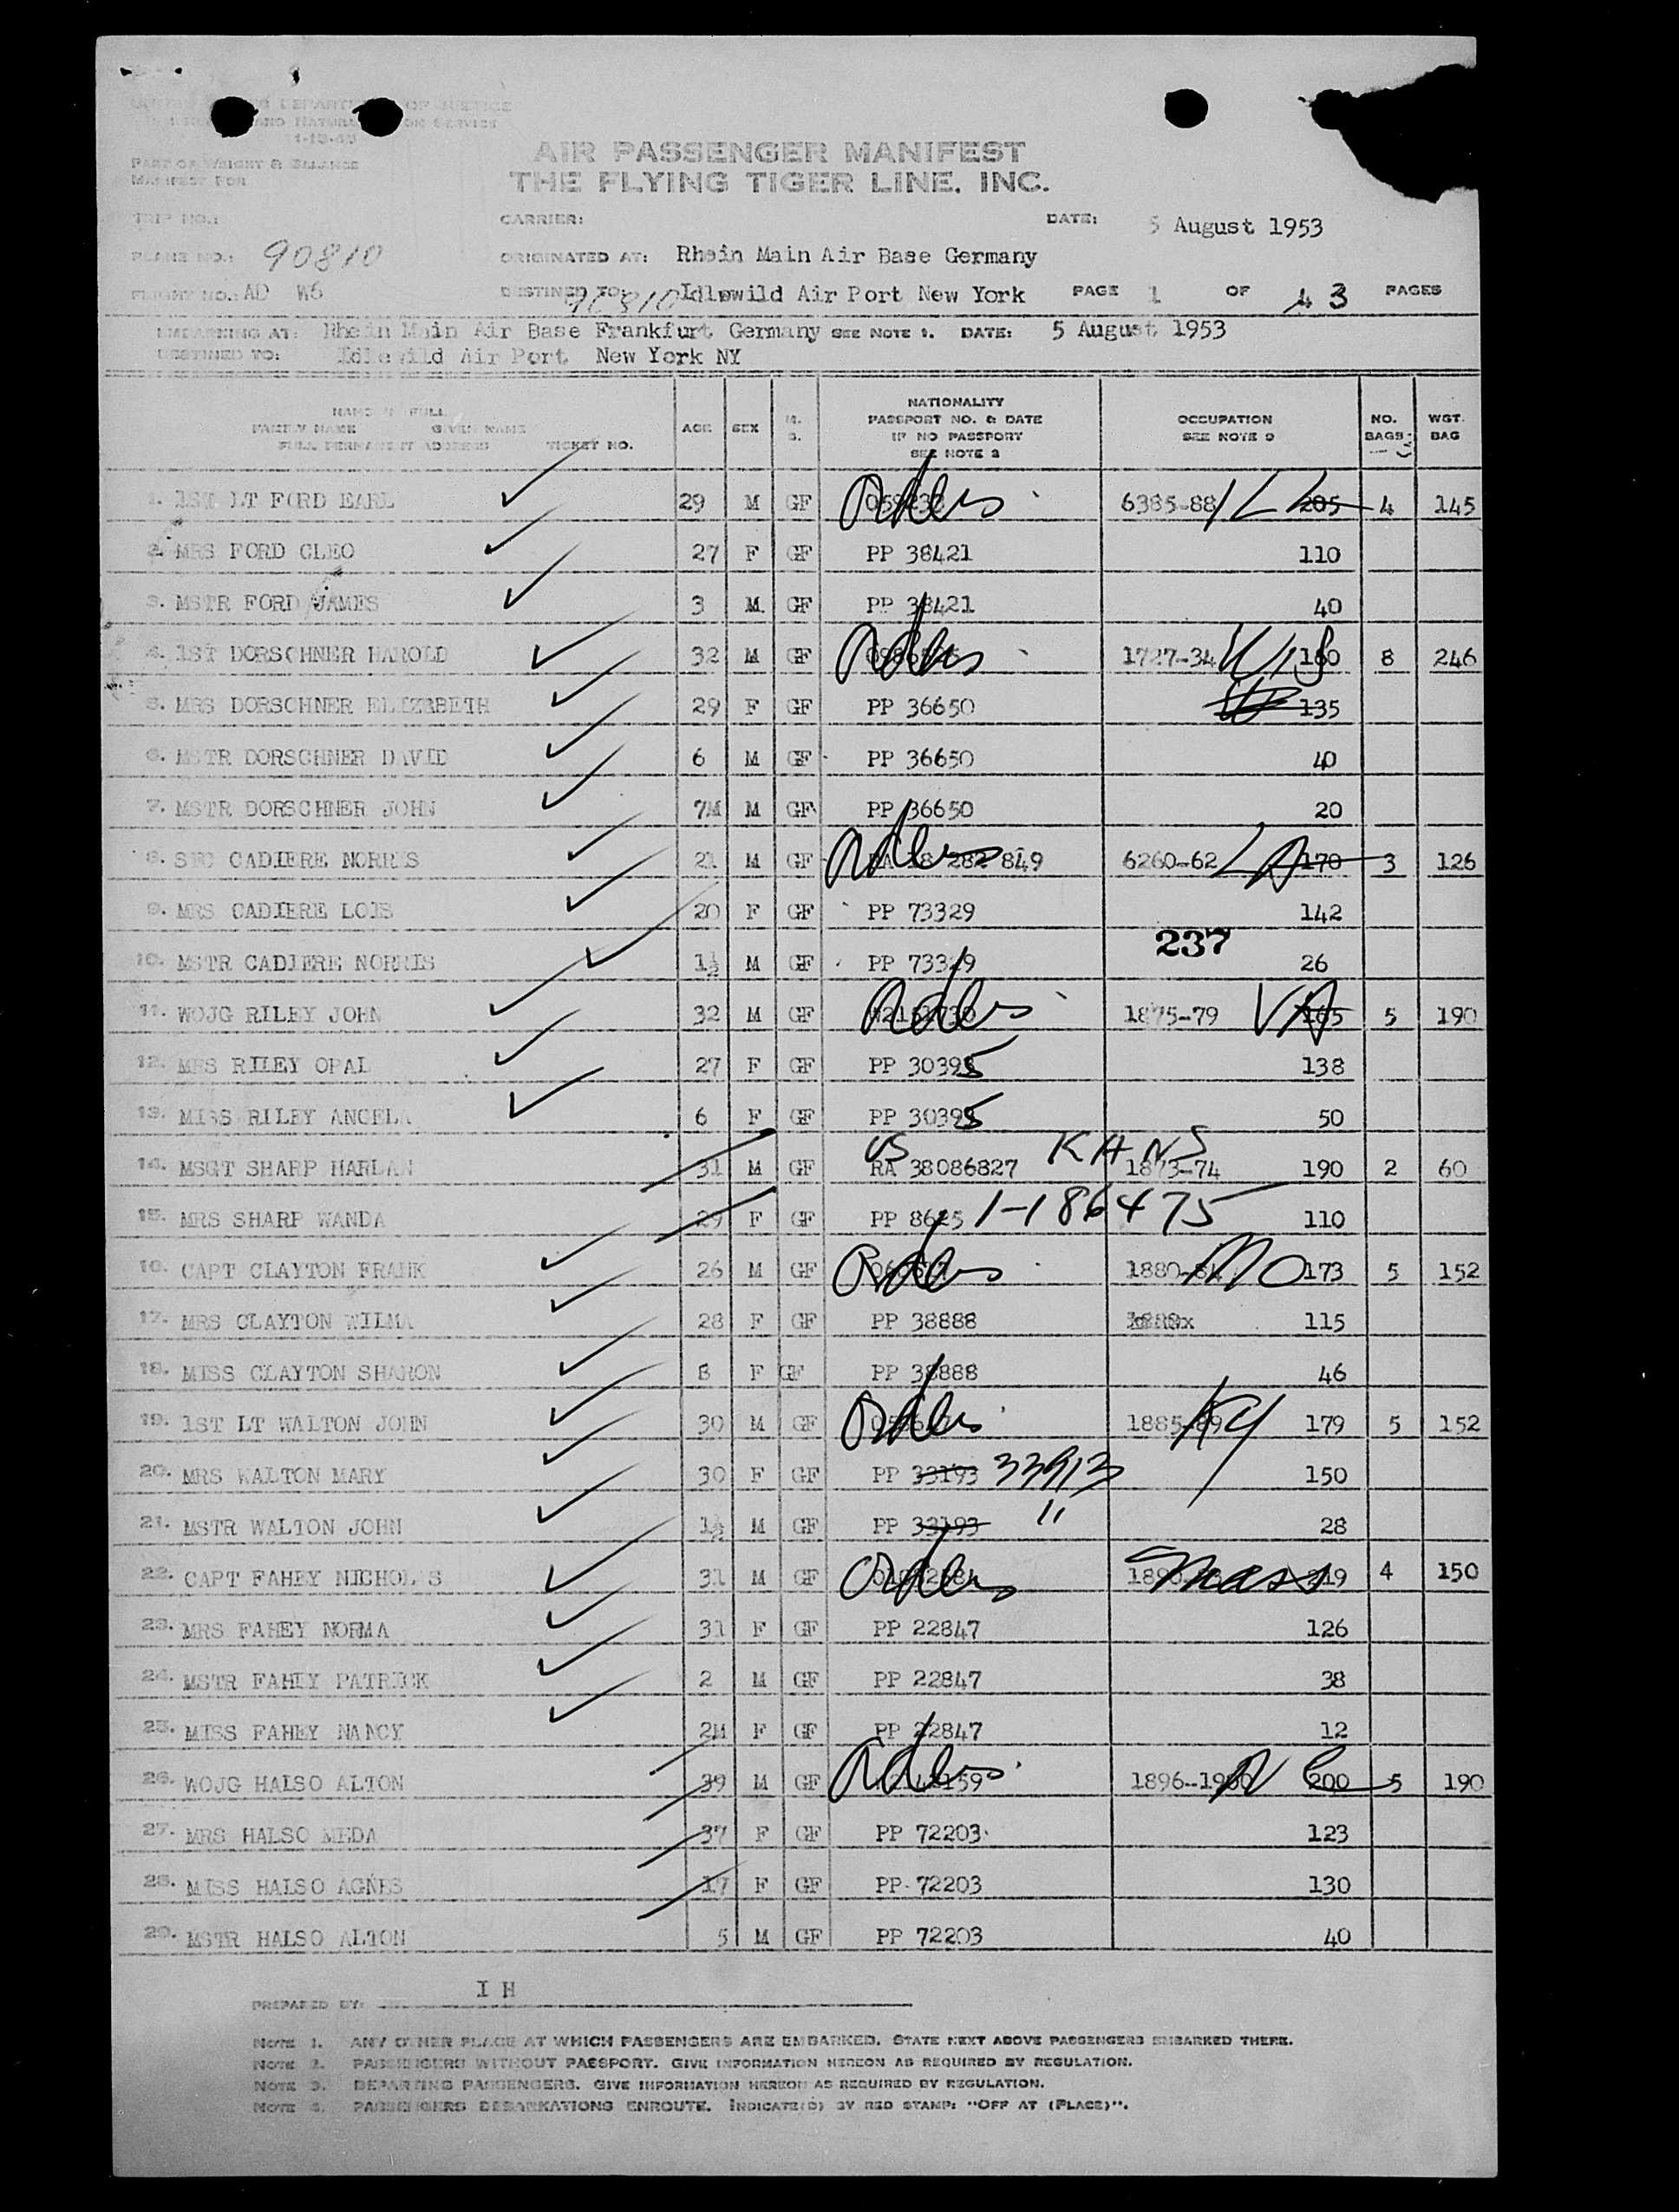 UNITED STATES DEPARTMENT OF JUSTICE
IMMIGRATION AND NATURALIZATION SERVICE
1-13-49
PART OF WEIGHT & BALANCE
MANIFEST FOR
AIR PASSENGER MANIFEST
THE FLYING TIGER LINE, INC.
TRIP NO.: CARRIER: DATE: 5 August 1953
PLANE NO.: 90810 ORIGINATED AT: Rhein Main Air Base Germany
FLIGHT NO.: AD W6 DESTINED TO: 90810 Idlewild Air Port New York PAGE 1 OF 3 PAGES
EMBARKING AT: Rhein Main Air Base Frankfurt Germany SEE NOTE 1. DATE: 5 August 1953
DESTINED TO: Idlewild Air Port New York NY
NAME IN FULL
FAMILY NAME GIVEN NAME
FULL PERMANENT ADDRESS TICKET NO.
AGE SEX M. S.
NATIONALITY
PASSPORT NO. & DATE
IF NO PASSPORT
SEE NOTE 2
OCCUPATION
SEE NOTE 3
NO. BAGS
WGT. BAG
1. 1ST LT FORD EARL 29 M GF Orders 6385-88 ILL 205 4 145
2. MRS FORD CLEO 27 F GF PP 38421 110
3. MSTR FORD JAMES 3 M GF PP 38421 40
4. 1ST DORSCHNER HAROLD 32 M GF Orders 1727-34 WIS 160 8 246
5. MRS DORSCHNER ELIZABETH 29 F GF PP 36650 135
6. MSTR DORSCHNER DAVID 6 M GF PP 36650 40
7. MSTR DORSCHNER JOHN 7M M GF PP 36650 20
8. SFC CADIERE NORRIS 21 M GF Orders RA 18 282 849 6260-62 LA 170 3 126
9. MRS CADIERE LOIS 20 F GF PP 73329 142
237
10. MSTR CADIERE NORRIS 1½ M GF PP 73329 26
11. WOJG RILEY JOHN 32 M GF Orders 1875-79 VA 165 5 190
12. MRS RILEY OPAL 27 F GF PP 30395 138
13. MISS RILEY ANGELA 6 F GF PP 30395 50
14. MSGT SHARP HARLAN 31 M GF US RA 38086827 KANS 1873-74 190 2 60
15. MRS SHARP WANDA 29 F GF PP 8625 1-186475 110
16. CAPT CLAYTON FRANK 26 M GF Orders 1880-84 MO 173 5 152
17. MRS CLAYTON WILMA 28 F GF PP 38888 115
18. MISS CLAYTON SHARON 8 F GF PP 38888 46
19. 1ST LT WALTON JOHN 30 M GF Orders 1885-89 KY 179 5 152
20. MRS WALTON MARY 30 F GF PP 33193 33913 150
21. MSTR WALTON JOHN 1½ M GF PP 33193 " 28
22. CAPT FAHEY NICHOLAS 31 M GF Orders Mass 219 4 150
23. MRS FAHEY NORMA 31 F GF PP 22847 126
24. MSTR FAHEY PATRICK 2 M GF PP 22847 38
25. MISS FAHEY NANCY 2M F GF PP 22847 12
26. WOJG HALSO ALTON 39 M GF Orders 1896-1900 NC 200 5 190
27. MRS HALSO MEDA 37 F GF PP 72203 123
28. MISS HALSO AGNES 17 F GF PP 72203 130
29. MSTR HALSO ALTON 5 M GF PP 72203 40
PREPARED BY: I H
NOTE 1. ANY OTHER PLACE AT WHICH PASSENGERS ARE EMBARKED. STATE NEXT ABOVE PASSENGERS EMBARKED THERE.
NOTE 2. PASSENGERS WITHOUT PASSPORT. GIVE INFORMATION HEREON AS REQUIRED BY REGULATION.
NOTE 3. DEPARTING PASSENGERS. GIVE INFORMATION HEREON AS REQUIRED BY REGULATION.
NOTE 4. PASSENGERS DEBARKATIONS ENROUTE. INDICATE(D) BY RED STAMP: "OFF AT (PLACE)".